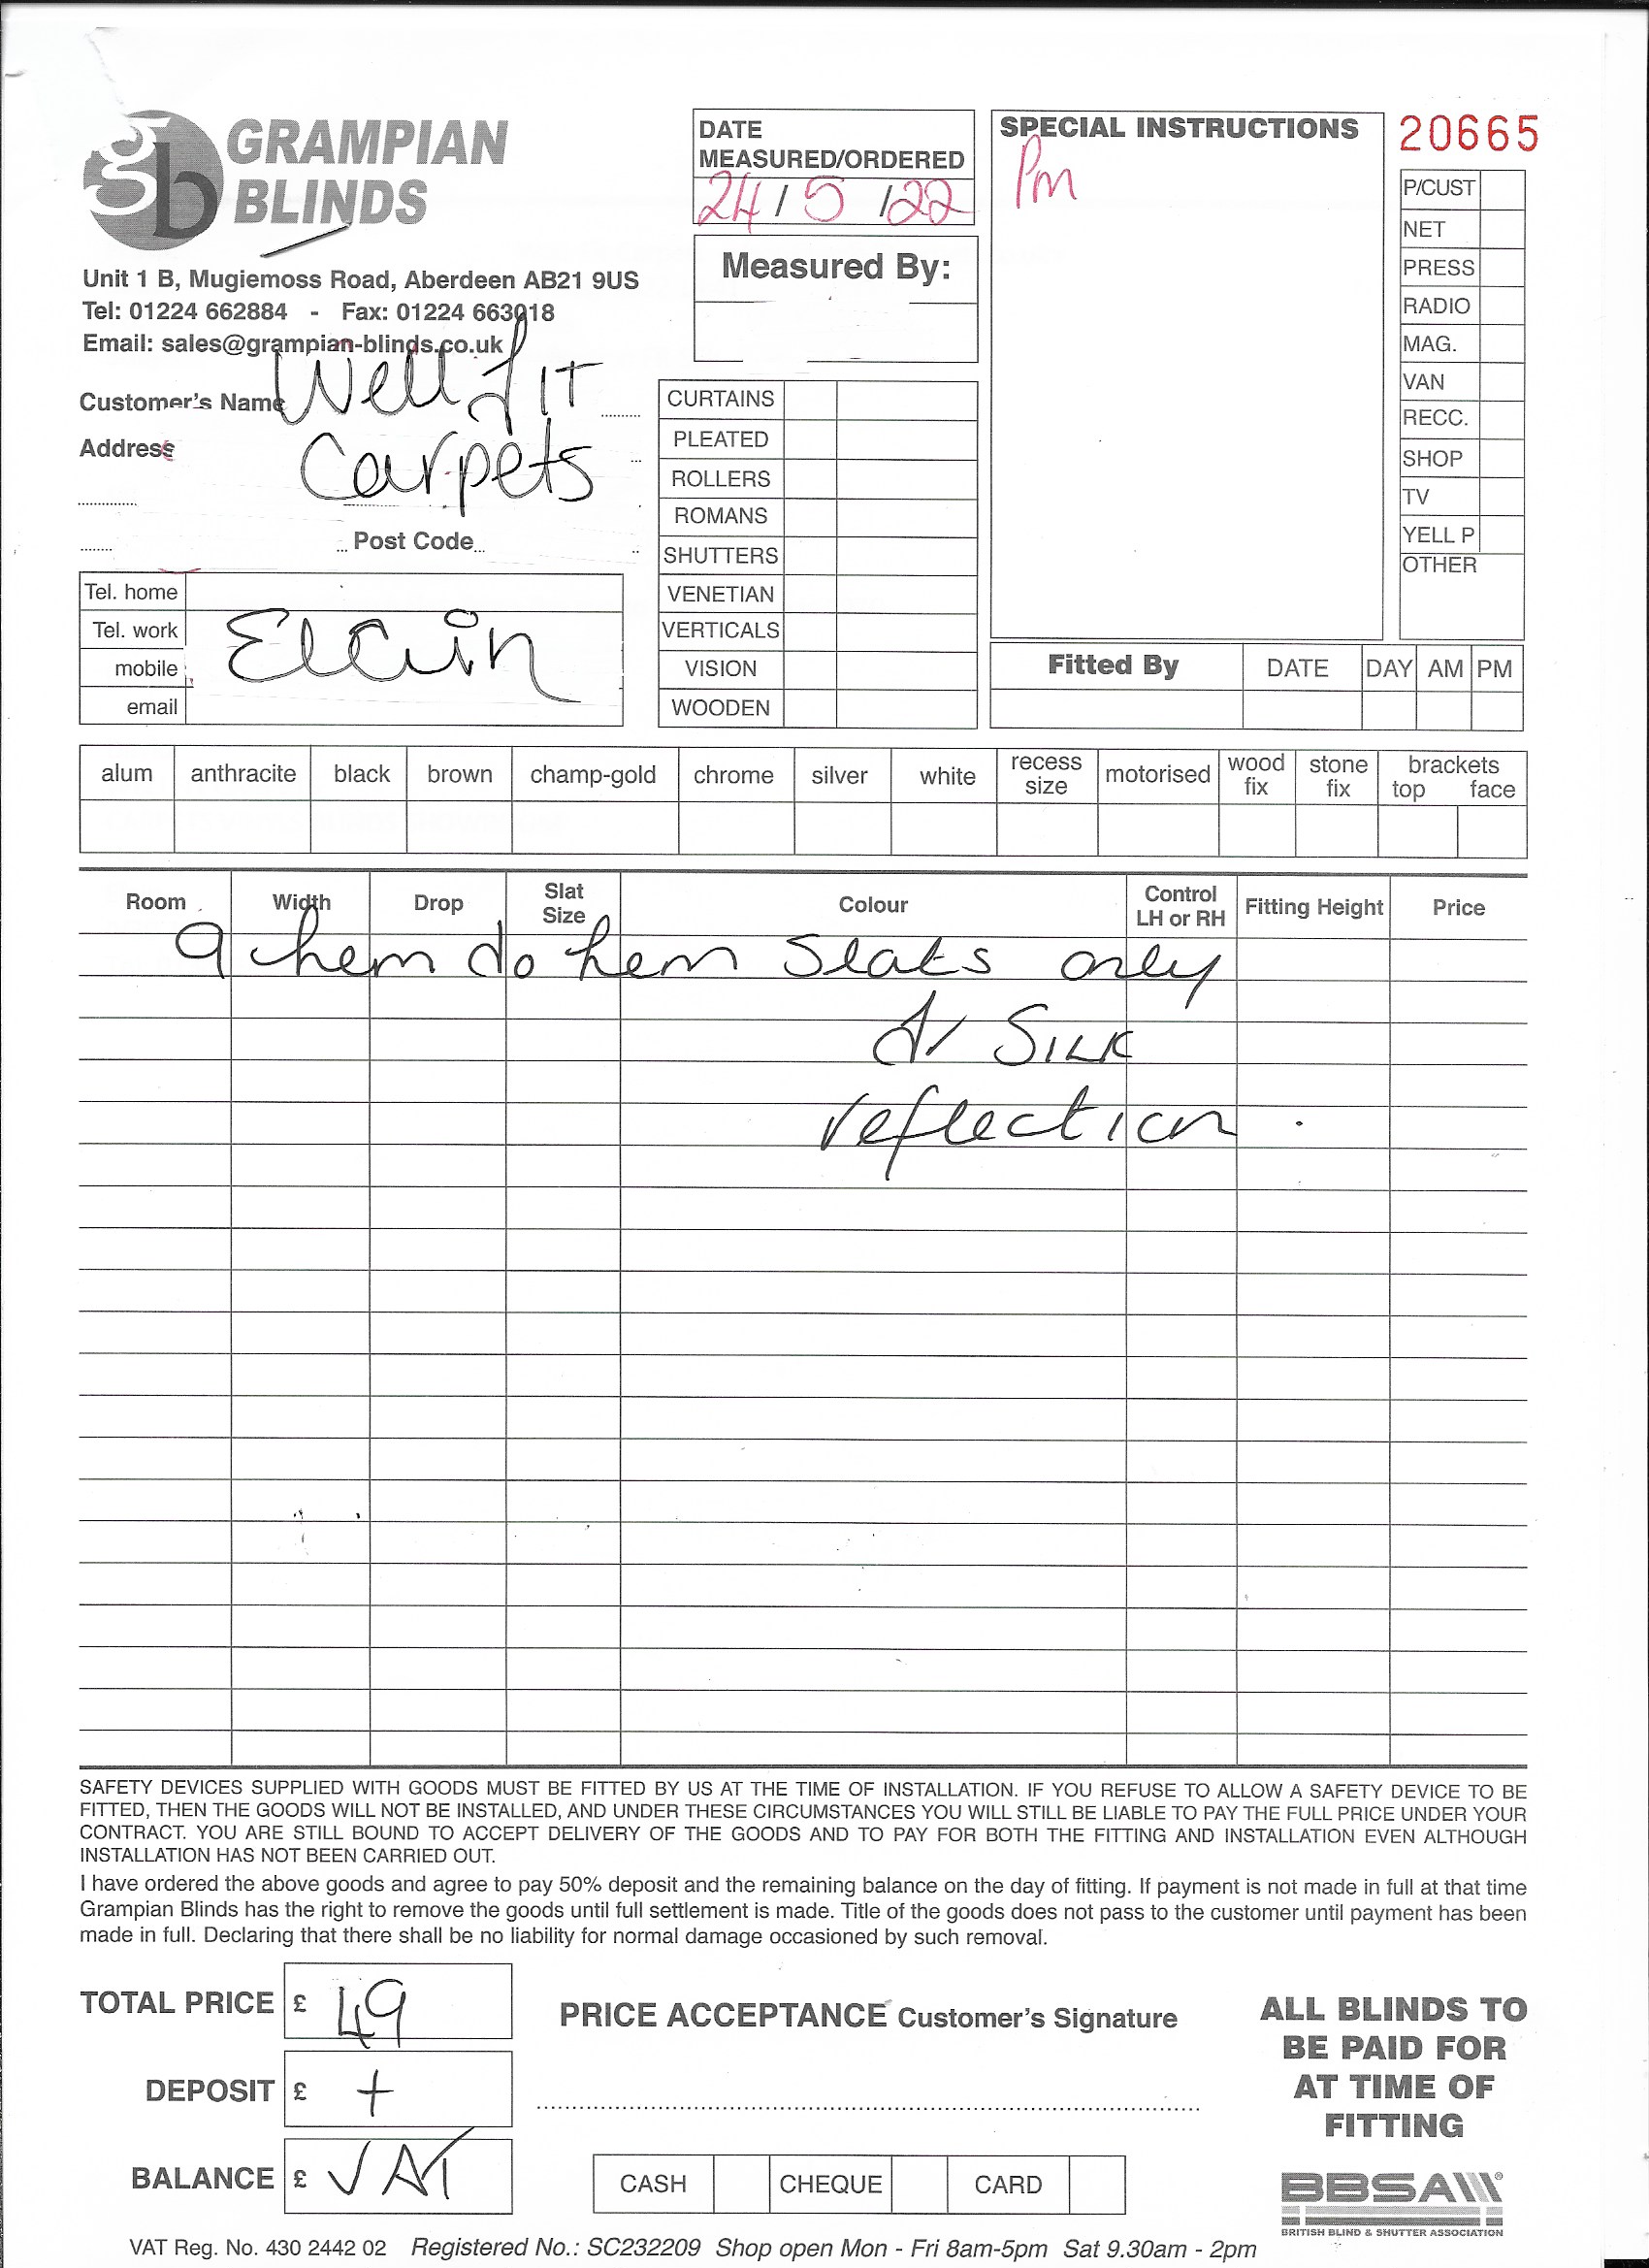 GRAMPIAN
BLINDS
Unit 1 B, Mugiemoss Road, Aberdeen AB21 9US
Tel: 01224 662884 - Fax: 01224 663018
Email: sales@grampian-blinds.co.uk
Customer's Name Well fit
Address Carpets
Post Code
Tel. home
Tel. work
mobile
email
Elgin
DATE
MEASURED/ORDERED
24/5/22
Measured By:
CURTAINS
PLEATED
ROLLERS
ROMANS
SHUTTERS
VENETIAN
VERTICALS
VISION
WOODEN
SPECIAL INSTRUCTIONS
Pm
20665
P/CUST
NET
PRESS
RADIO
MAG.
VAN
RECC.
SHOP
TV
YELL P
OTHER
Fitted By DATE DAY AM PM
alum anthracite black brown champ-gold chrome silver white recess size motorised wood fix stone fix brackets top face
Room Width Drop Slat Size Colour Control LH or RH Fitting Height Price
9 hem to hem Slats only
SILK
reflection
SAFETY DEVICES SUPPLIED WITH GOODS MUST BE FITTED BY US AT THE TIME OF INSTALLATION. IF YOU REFUSE TO ALLOW A SAFETY DEVICE TO BE
FITTED, THEN THE GOODS WILL NOT BE INSTALLED, AND UNDER THESE CIRCUMSTANCES YOU WILL STILL BE LIABLE TO PAY THE FULL PRICE UNDER YOUR
CONTRACT. YOU ARE STILL BOUND TO ACCEPT DELIVERY OF THE GOODS AND TO PAY FOR BOTH THE FITTING AND INSTALLATION EVEN ALTHOUGH
INSTALLATION HAS NOT BEEN CARRIED OUT.
I have ordered the above goods and agree to pay 50% deposit and the remaining balance on the day of fitting. If payment is not made in full at that time
Grampian Blinds has the right to remove the goods until full settlement is made. Title of the goods does not pass to the customer until payment has been
made in full. Declaring that there shall be no liability for normal damage occasioned by such removal.
TOTAL PRICE £ 49
DEPOSIT £ +
BALANCE £ VAT
PRICE ACCEPTANCE Customer's Signature
CASH CHEQUE CARD
ALL BLINDS TO
BE PAID FOR
AT TIME OF
FITTING
BBSA
BRITISH BLIND & SHUTTER ASSOCIATION
VAT Reg. No. 430 2442 02 Registered No.: SC232209 Shop open Mon - Fri 8am-5pm Sat 9.30am - 2pm